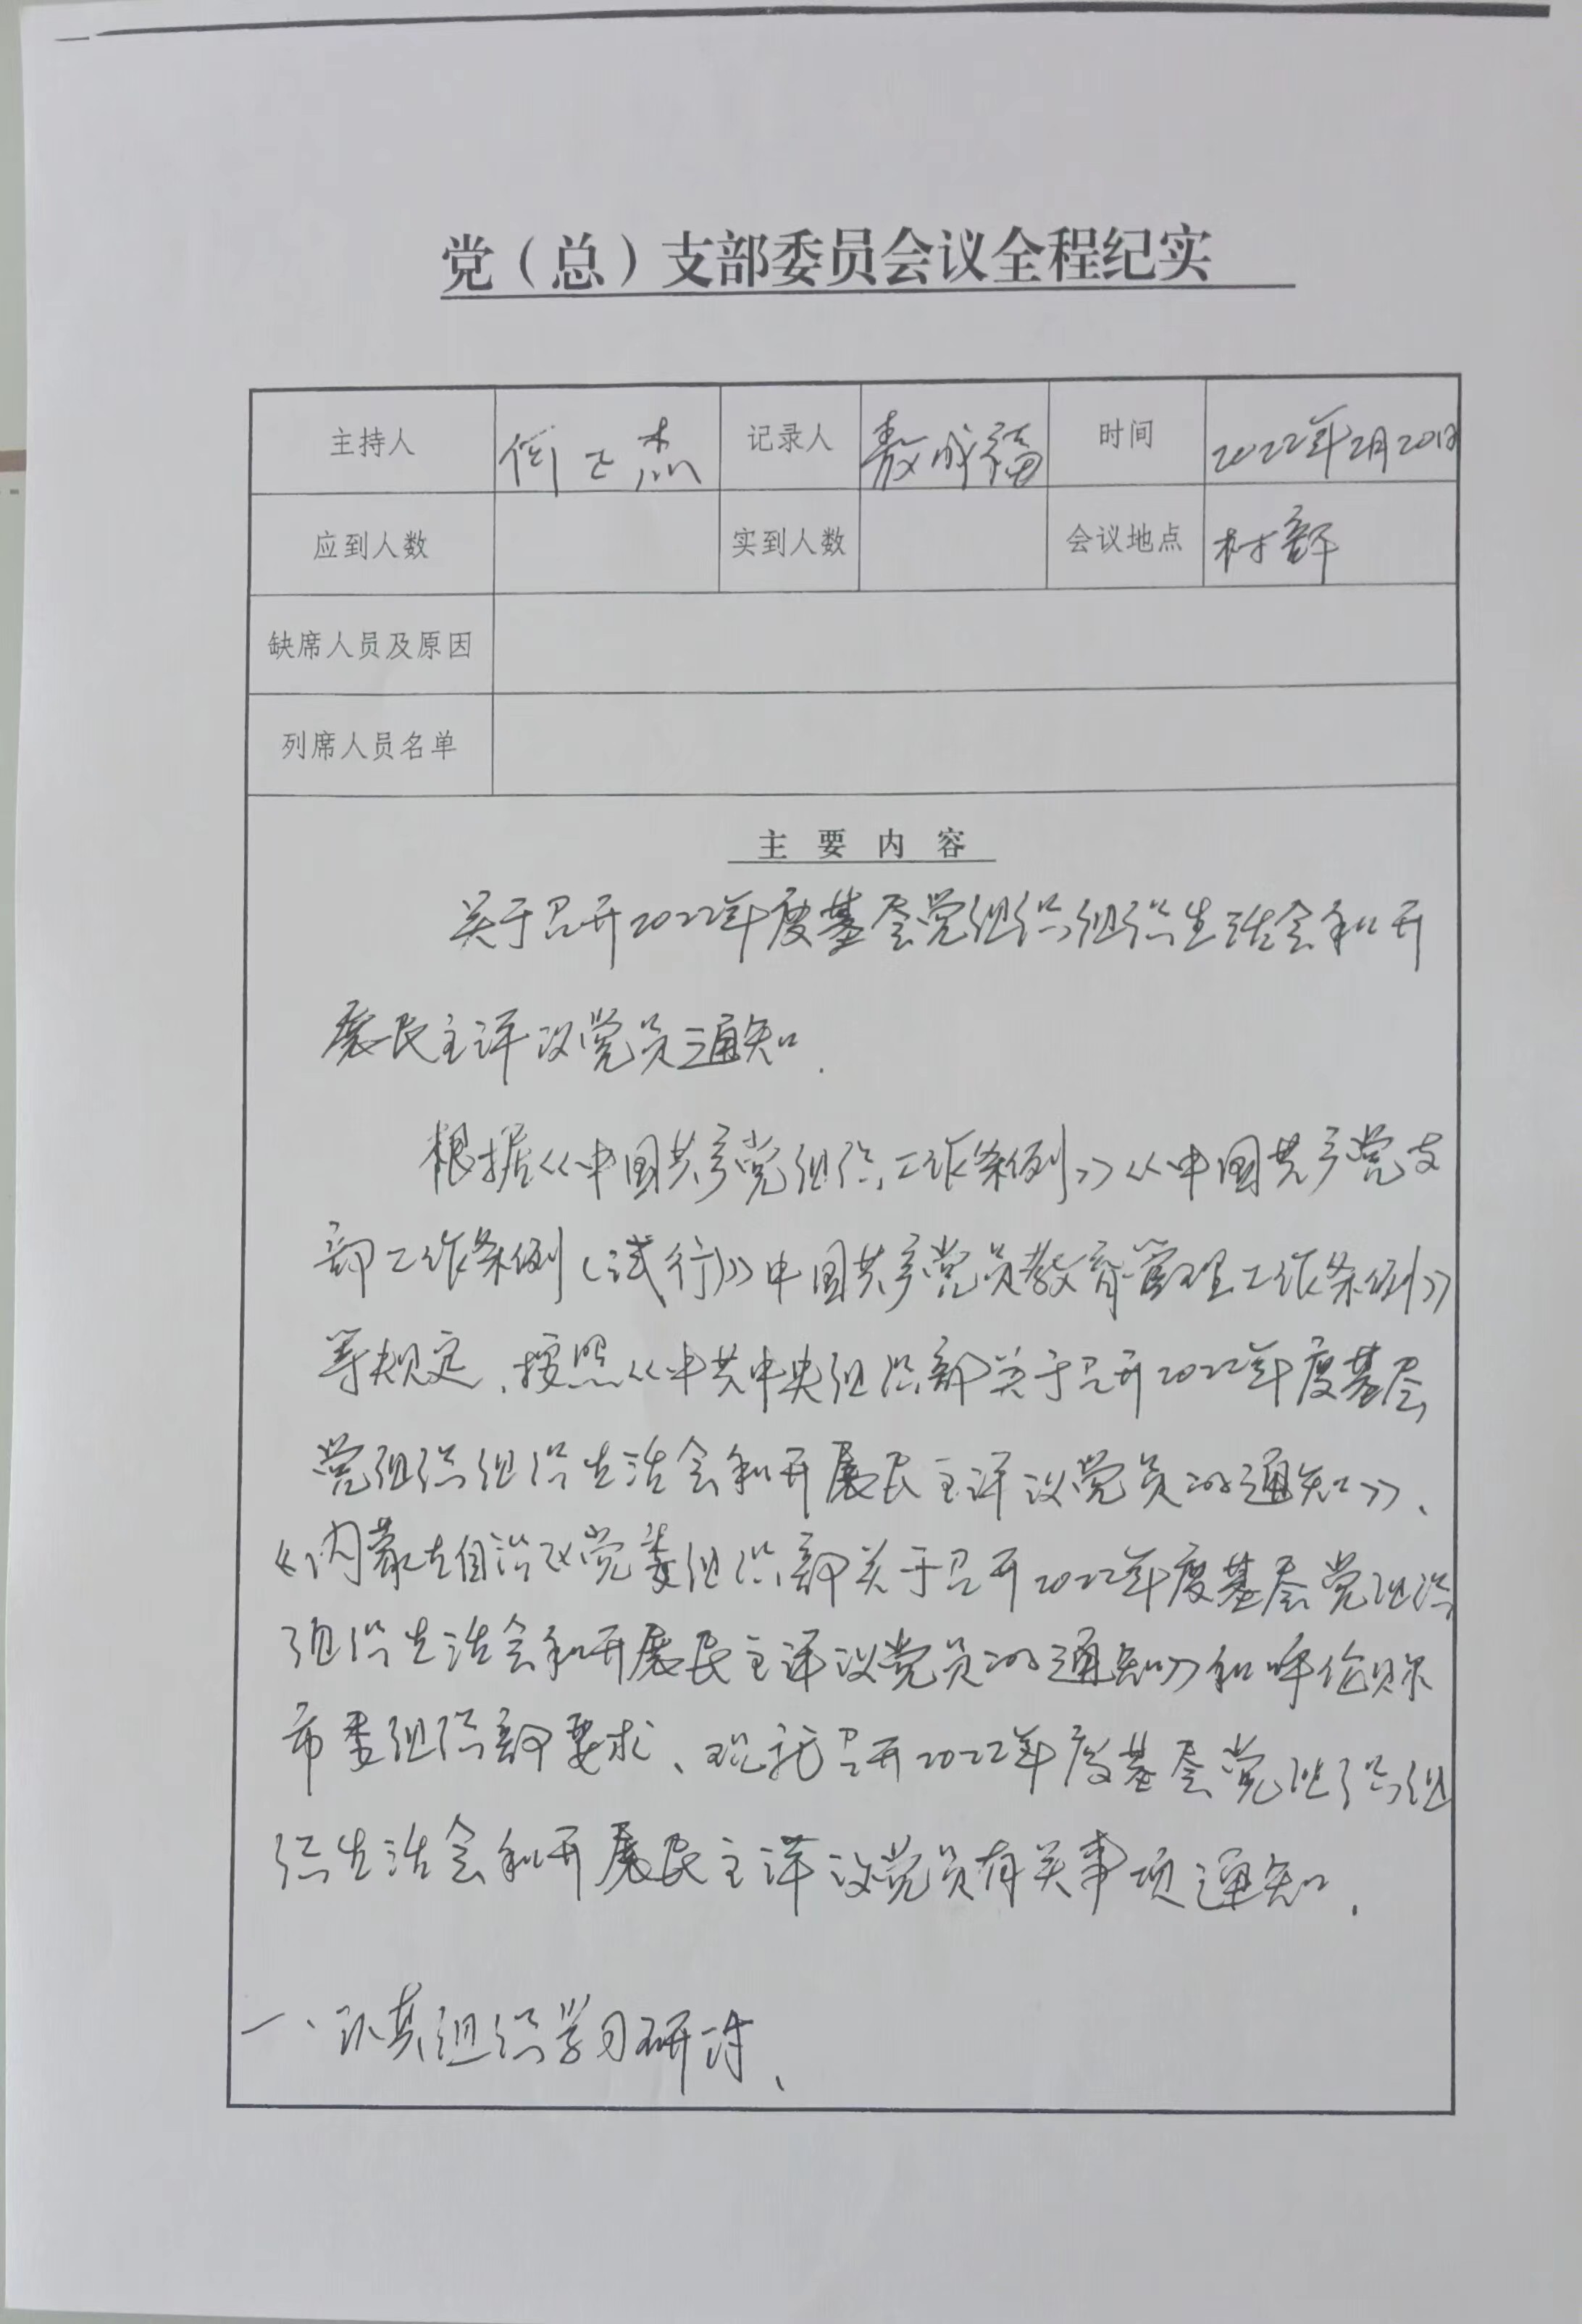 党（总）支部委员会议全程纪实
主持人 何 杰 记录人 敖成福 时间 2022年2月20日
应到人数 实到人数 会议地点 村部
缺席人员及原因
列席人员名单
主要内容
关于召开2022年度基层党组织组织生活会和开
展民主评议党员通知.
根据《中国共产党组织工作条例》《中国共产党支
部工作条例(试行)》中国共产党员教育管理工作条例》
等规定、按照《中共中央组织部关于召开2022年度基层
党组织组织生活会和开展民主评议党员的通知》、
《内蒙古自治区党委组织部关于召开2022年度基层党组织
组织生活会和开展民主评议党员的通知》和呼伦贝尔
市委组织部要求、现就召开2022年度基层党组织组
织生活会和开展民主评议党员有关事项通知.
一、认真组织学习研讨、